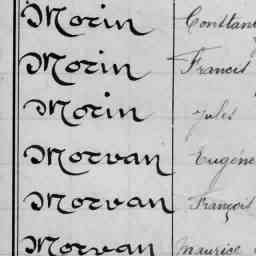 Morin Constant
Morin Francis
Morin Jules
Morvan Eugène
Morvan François
Morvan Maurice